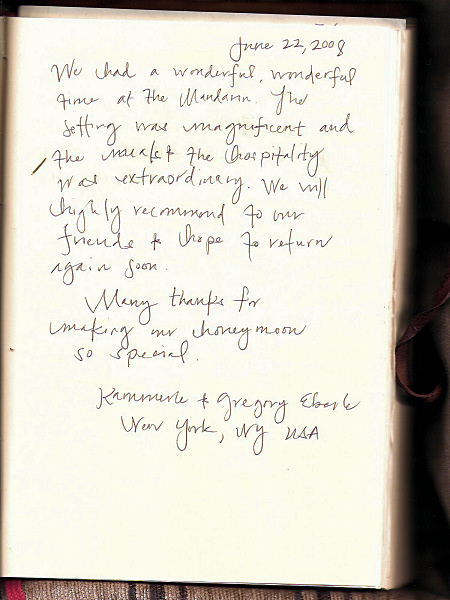 June 22, 2008
We had a wonderful, wonderful
time at the Mandarin. The
setting was magnificent and
the meals & the hospitality
was extraordinary. We will
highly recommend to our
friends & hope to return
again soon.
Many thanks for
making our honeymoon
so special.
& Gregory
New York, NY USA